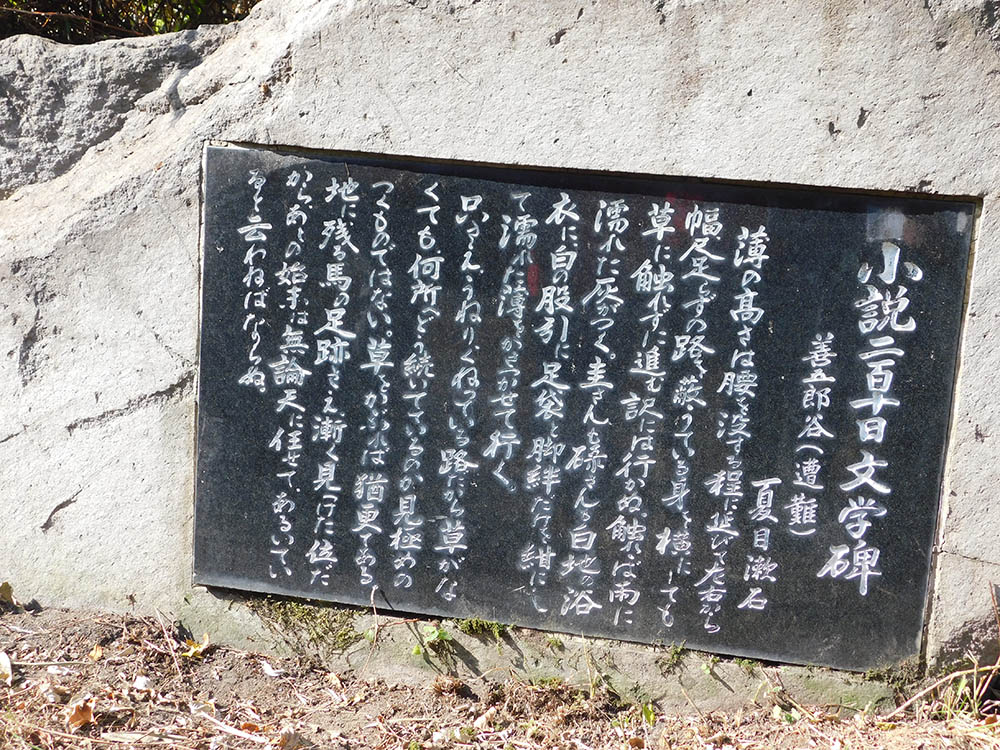 小説二百十日文学碑
善五郎谷(遭難)
夏目漱石
薄の高さは腰を没する程に延びて左右から
幅足らずの路を蔽うている身を横にしても
草に触れずに進む訳には行かぬ触れゝば雨に
濡れた灰がつく。圭さんも碌さんも白地の浴
衣に白の股引に足袋と脚絆だけを紺にし
て濡れた薄をがさつかせて行く。
只さえ、うねり、くねっている路だから、草がな
くても何所へどう続いているのか見極めの
つくものではない。草をかぶれば猶更である。
地に残る馬の足跡さえ、漸く見つけた位だ
から、あとの始末は無論天に任せて、あるいてい
ると云わねばならぬ